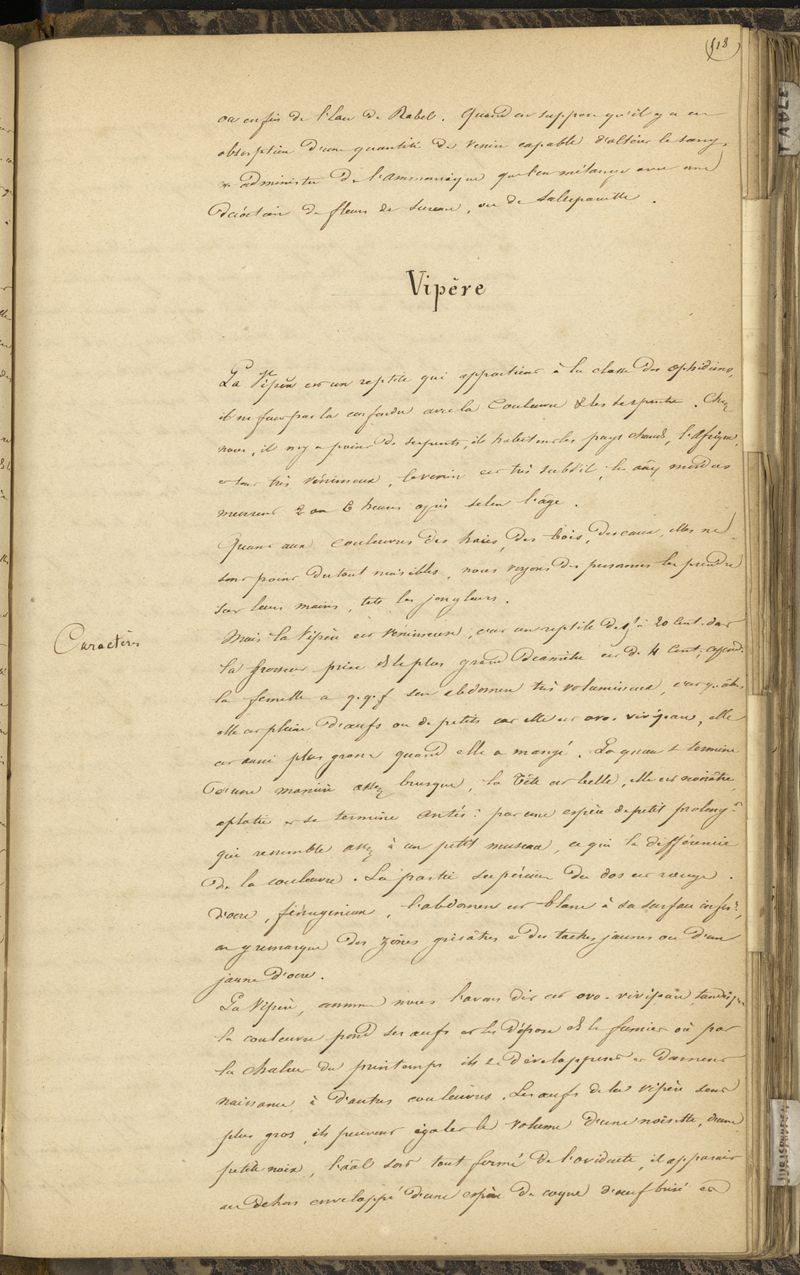 118
ou enfin de l'Eau de Rabel. Quand on suppose qu'il y a eu
absorption d'une quantité de venin capable d'altérer le sang,
on administre de l'ammoniaque que l'on mélange avec une
décoction de fleurs de sureau, ou de salsepareille.
Vipère
La Vipère est un reptile qui appartient à la classe des ophidiens,
il ne faut pas la confondre avec la Couleuvre & les serpents. Chez
nous, il n'y a point de serpents, ils habitent les pays chauds, l'Afrique,
et sont très vénimeux, le venin est très subtil, les mordus
meurent 2 ou 6 heures après selon l'âge.
Quant aux couleuvres des haies, des bois, des eaux, elles ne
sont point du tout nuisibles, nous voyons des personnes les prendre
sur leurs mains, tels les jongleurs.
Caractères
Mais la Vipère est vénimeuse, c'est un reptile de à 20 cent. dont
la grosseur prise ds le plus grand diamètre est de 4 cent.
la femelle a q.q.f son abdomen très volumineux,
elle est pleine d'œufs ou de petits car elle est ovo-vivipare, elle
est aussi plus grosse quand elle a mangé. La queue se termine
d'une manière assez brusque, la tête est belle, elle est noirâtre,
aplatie et se termine antér: par une espèce de petit prolongt
qui ressemble assez à un petit museau, ce qui la différencie
de la couleuvre. La partie supérieure du dos est rouge
d'ocre, férrugineux, l'abdomen est blanc à sa surface infre,
on y remarque des zônes grisâtres et des taches jaunes ou d'un
jaune d'ocre.
La Vipère, comme nous l'avons dit est ovo-vivipare, tandis que
la couleuvre pond ses œufs et les dépose ds le fumier où par
la chaleur du printemps ils se développent et donnent
naissance à d'autres couleuvres. Les œufs de la vipère sont
plus gros, ils peuvent égaler le volume d'une noisette, d'une
petite noix, sort tout formé de l'oviducte, il apparait
au dehors enveloppé d'une espèce de coque d'œuf brisé et
TABLE
JURISPRUDENCE